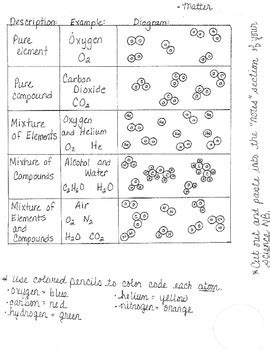 - Matter
Description: Example: Diagram:
Pure
element
Oxygen
O₂
Pure
compound
Carbon
Dioxide
CO₂
Mixture
of Elements
Oxygen
and Helium
O₂ He
Mixture of
Compounds
Alcohol and
Water
C₂H₆O H₂O
Mixture of
Elements
and
Compounds
Air
O₂ N₂
H₂O CO₂
* use colored pencils to color code each atom.
• oxygen = blue
• carbon = red
• hydrogen = green
• helium = yellow
• nitrogen = orange
* Cut out and paste into the "notes" section of your
science NB.